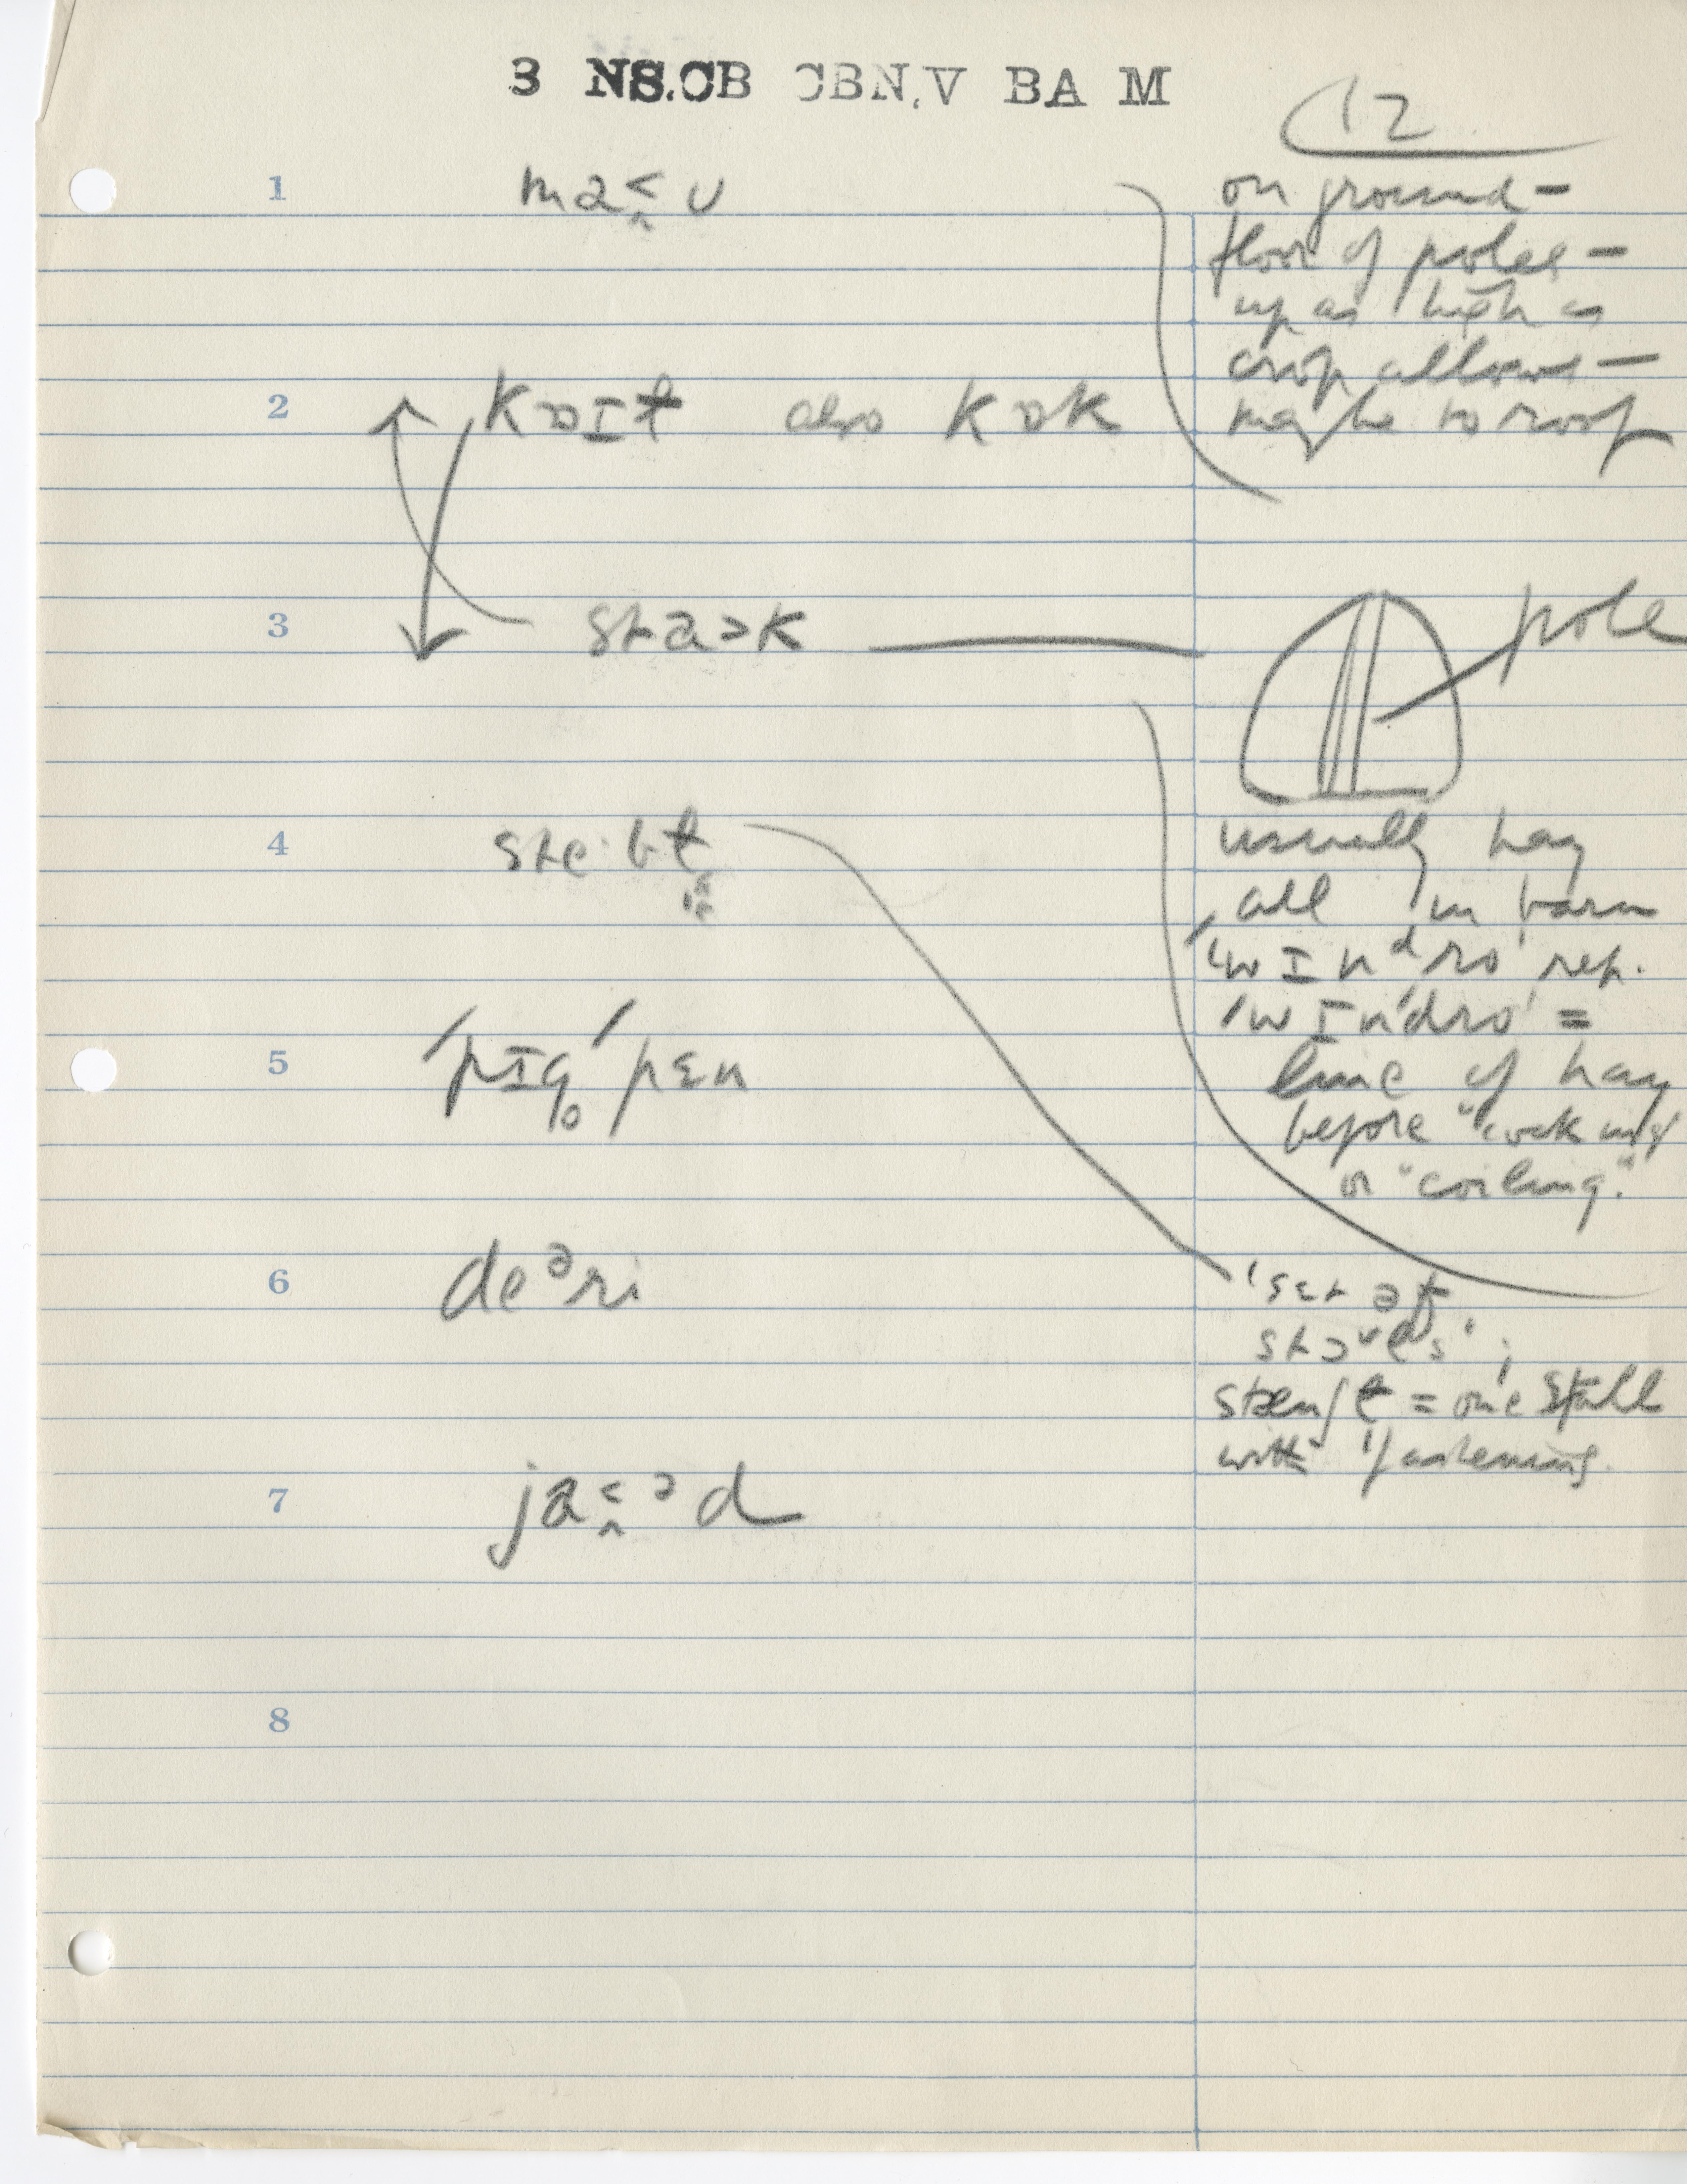 3 NS.CB CBN.V BA M
12
1 ma
on ground –
floor of poles –
up as high as
crop allows –
maybe to roof
2 kɒɪɫ also kɒk
3 stak
pole
4 ste·bɫ
usually hay
all in barn
'wɪnᵈro' rep.
'wɪndro' =
line of hay
before "cocking"
or "coiling."
5 ′pɪg̥ ′pɛn
6 deᵊri
'sɛt əf
stɔᵘɫs';
= one stall
with fastening.
7 ja ᵊd
8